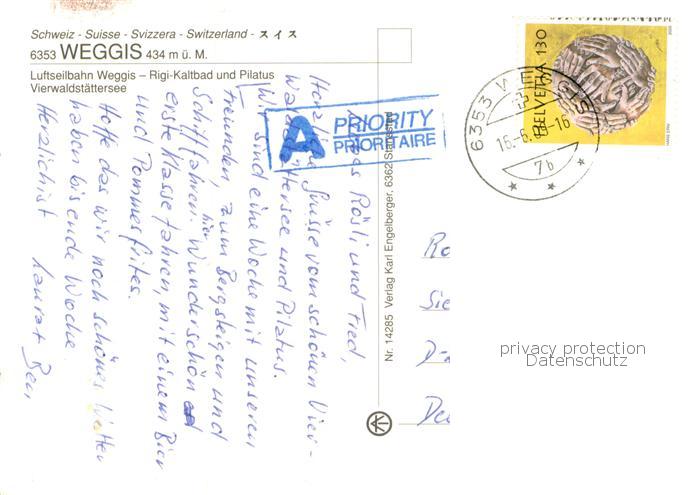 Schweiz - Suisse - Svizzera - Switzerland - スイス
6353 WEGGIS 434 m ü. M.
Luftseilbahn Weggis – Rigi-Kaltbad und Pilatus
Vierwaldstättersee
HELVETIA 130
6353 WEGGIS
16.-6.
-16
7b
A PRIORITY
PRIORITAIRE
Rösli und Fred,
Grüsse vom schönen Vier-
waldstättersee und Pilatus.
Wir sind eine Woche mit unseren
Freunden, zum Bergsteigen und
Schifffahren. hier Wunderschön
erste Klasse fahren, mit einem Bier
und Pommesfrites.
Hoffe das wir noch schönes Wetter
haben bis ende Woche.
Herzlichst
Nr. 14285 Verlag Karl Engelberger, 6362 Stansstad
privacy protection
Datenschutz